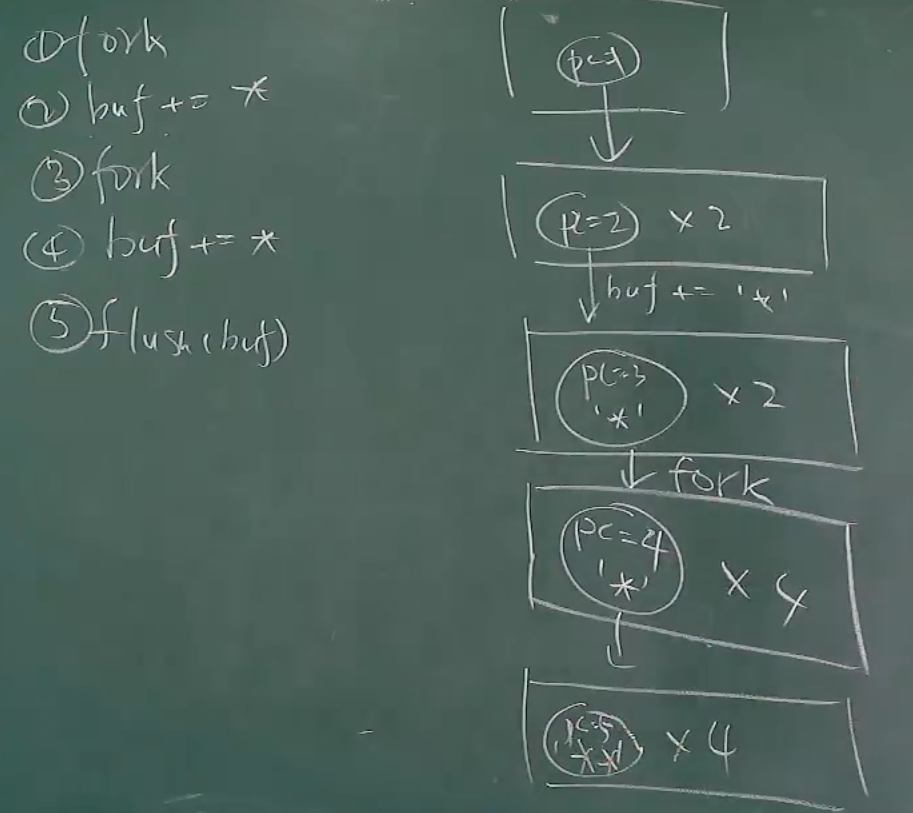 ① fork
② buf += *
③ fork
④ buf += *
⑤ flush(buf)
pc=1
pc=2 ×2
buf += '*'
pc=3 ×2
'*'
fork
pc=4
'*' ×4
pc=5
'**' ×4